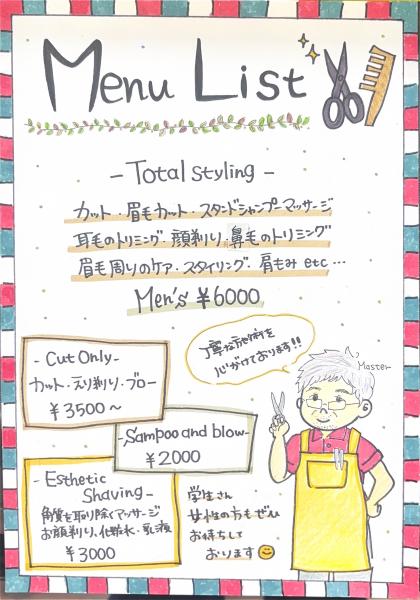 Menu List
-Total styling-
カット・眉毛カット・スタンドシャンプーマッサージ
耳毛のトリミング・顔剃り・鼻毛のトリミング
眉毛周りのケア・スタイリング・肩もみ etc…
Men's ¥6000
丁寧な施術を
心がけております!!
Master
-Cut Only-
カット・えり剃り・ブロー
¥3500〜
-Sampoo and blow-
¥2000
-Esthetic
Shaving-
角質を取り除くマッサージ
お顔剃り、化粧水・乳液
¥3000
学生さん
女性の方もぜひ
お待ちして
おります